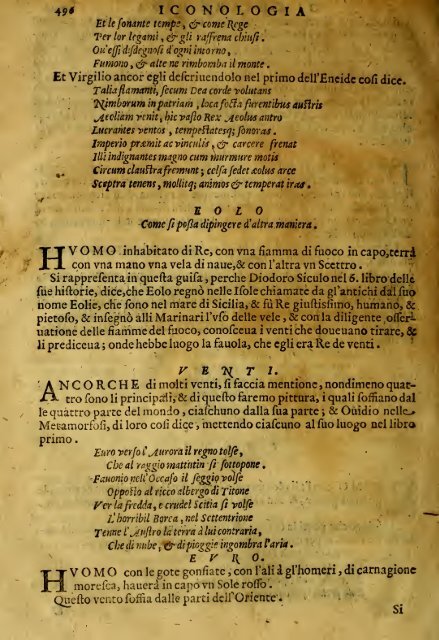 496 ICONOLOGIA
Et le sonante tempe, & come Rege
Per lor legami, & gli raffrena chiusi.
Ou'essi disdegnosi d'ogni intorno,
Fumono, & alte ne rimbomba il monte.
Et Virgilio ancor egli descriuendolo nel primo dell'Eneide cosi dice.
Talia flamanti, secum Dea corde volutans
Nimborum in patriam, loca fœta furentibus austris
Aeoliam venit, hic vasto Rex Aeolus antro
Lucrantes ventos, tempestatesq; sonoras.
Imperio præmit ac vinculis, & carcere frenat
Illi indignantes magno cum murmure motis
Circum claustra fremunt; celsa sedet æolus arce
Sceptra tenens, mollitq; animos & temperat iras.
EOLO
Come si possa dipingere d'altra maniera.
HVOMO inhabitato di Re, con vna fiamma di fuoco in capo, terrà
con vna mano vna vela di naue, & con l'altra vn Scettro.
Si rappresenta in questa guisa, perche Diodoro Siculo nel 6. libro delle
sue historie, dice, che Eolo regnò nelle Isole chiamate da gl'antichi dal suo
nome Eolie, che sono nel mare di Sicilia, & fù Re giustissimo, humano, &
pietoso, & insegnò alli Marinari l'vso delle vele, & con la diligente osser-
uatione delle fiamme del fuoco, conosceua i venti che doueuano tirare, &
li prediceua; onde hebbe luogo la fauola, che egli era Re de venti.
VENTI.
ANCORCHE di molti venti, si faccia mentione, nondimeno quat-
tro sono li principali, & di questo faremo pittura, i quali soffiano dal
le quattro parte del mondo, ciaschuno dalla sua parte; & Ouidio nelle
Metamorfosi, di loro cosi dice, mettendo ciaschuno al suo luogo nel libro
primo.
Euro verso l'Aurora il regno tolse,
Che al raggio mattintin si sottopone.
Fauonio nell'Occaso il seggio volse
Opposto al ricco albergo di Titone
Ver la fredda, e crudel Scitia si volse
L'horribil Borea, nel Settentrione
Tenne l'Austro la terra à lui contraria,
Che di nube, & di pioggie ingombra l'aria.
EVRO.
HVOMO con le gote gonfiate, con l'ali à gl'homeri, di carnagione
moresca, hauerà in capo vn Sole rosso.
Questo vento soffia dalle parti dell'Oriente.
Si